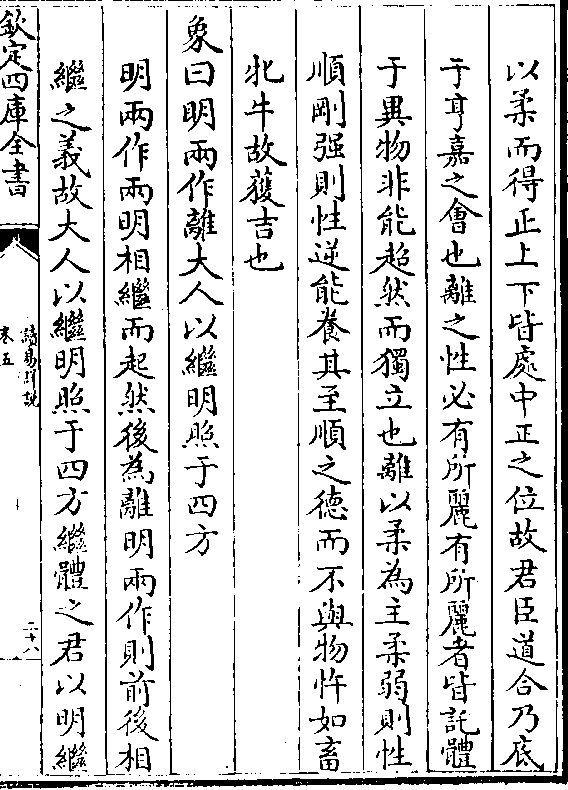 以柔而得正上下皆處中正之位故君臣道合乃底
于亨嘉之會也離之性必有所麗有所麗者皆託體
于異物非能超然而獨立也離以柔為主柔弱則性
順剛强則性逆能養其至順之德而不與物忤如畜
牝牛故獲吉也
象曰明兩作離大人以繼明照于四方
明兩作兩明相繼而起然後為離明兩作則前後相
繼之義故大人以繼明照于四方繼體之君以明繼
欽定四庫全書
讀易詳說
卷五
二十八